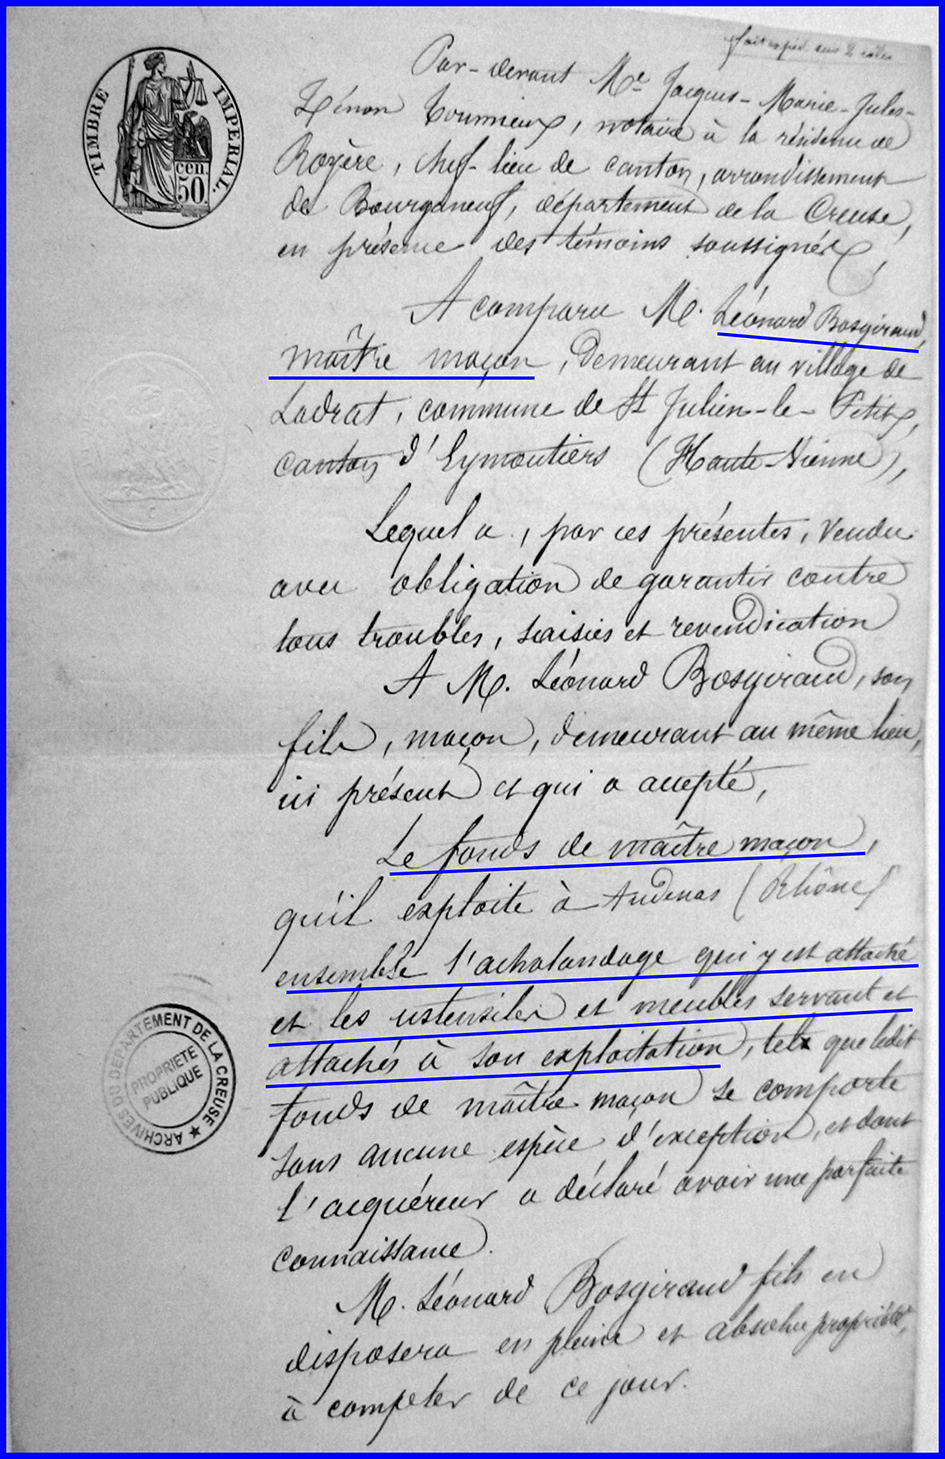 fait expédié sur 2 rôles
TIMBRE IMPÉRIAL.
cen.
50.
Par-devant Me Jacques-Marie-Jules-
Zénon Toumieux, notaire à la résidence de
Royère, chef-lieu de canton, arrondissement
de Bourganeuf, département de la Creuse,
en présence des témoins soussignés,
A comparu M. Léonard Bosgiraud,
maître maçon, demeurant au village de
Ladrat, commune de St Julien-le-Petit,
canton d'Eymoutiers (Haute-Vienne),
Lequel a, par ces présentes, vendu
avec obligation de garantir contre
tous troubles, saisies et revendication
A M. Léonard Bosgiraud, son
fils, maçon, demeurant au même lieu,
ici présent et qui a accepté,
Le fonds de maître maçon,
qu'il exploite à Andenas (Rhône)
ensemble l'achalandage qui y est attaché
et les ustensiles et meubles servant et
attachés à son exploitation, tels que ledit
fonds de maître maçon se comporte
sans aucune espèce d'exception, et dont
l'acquéreur a déclaré avoir une parfaite
connaissance.
M. Léonard Bosgiraud fils en
disposera en pleine et absolue propriété,
à compter de ce jour.
ARCHIVES DU DÉPARTEMENT DE LA CREUSE ★
PROPRIÉTÉ
PUBLIQUE